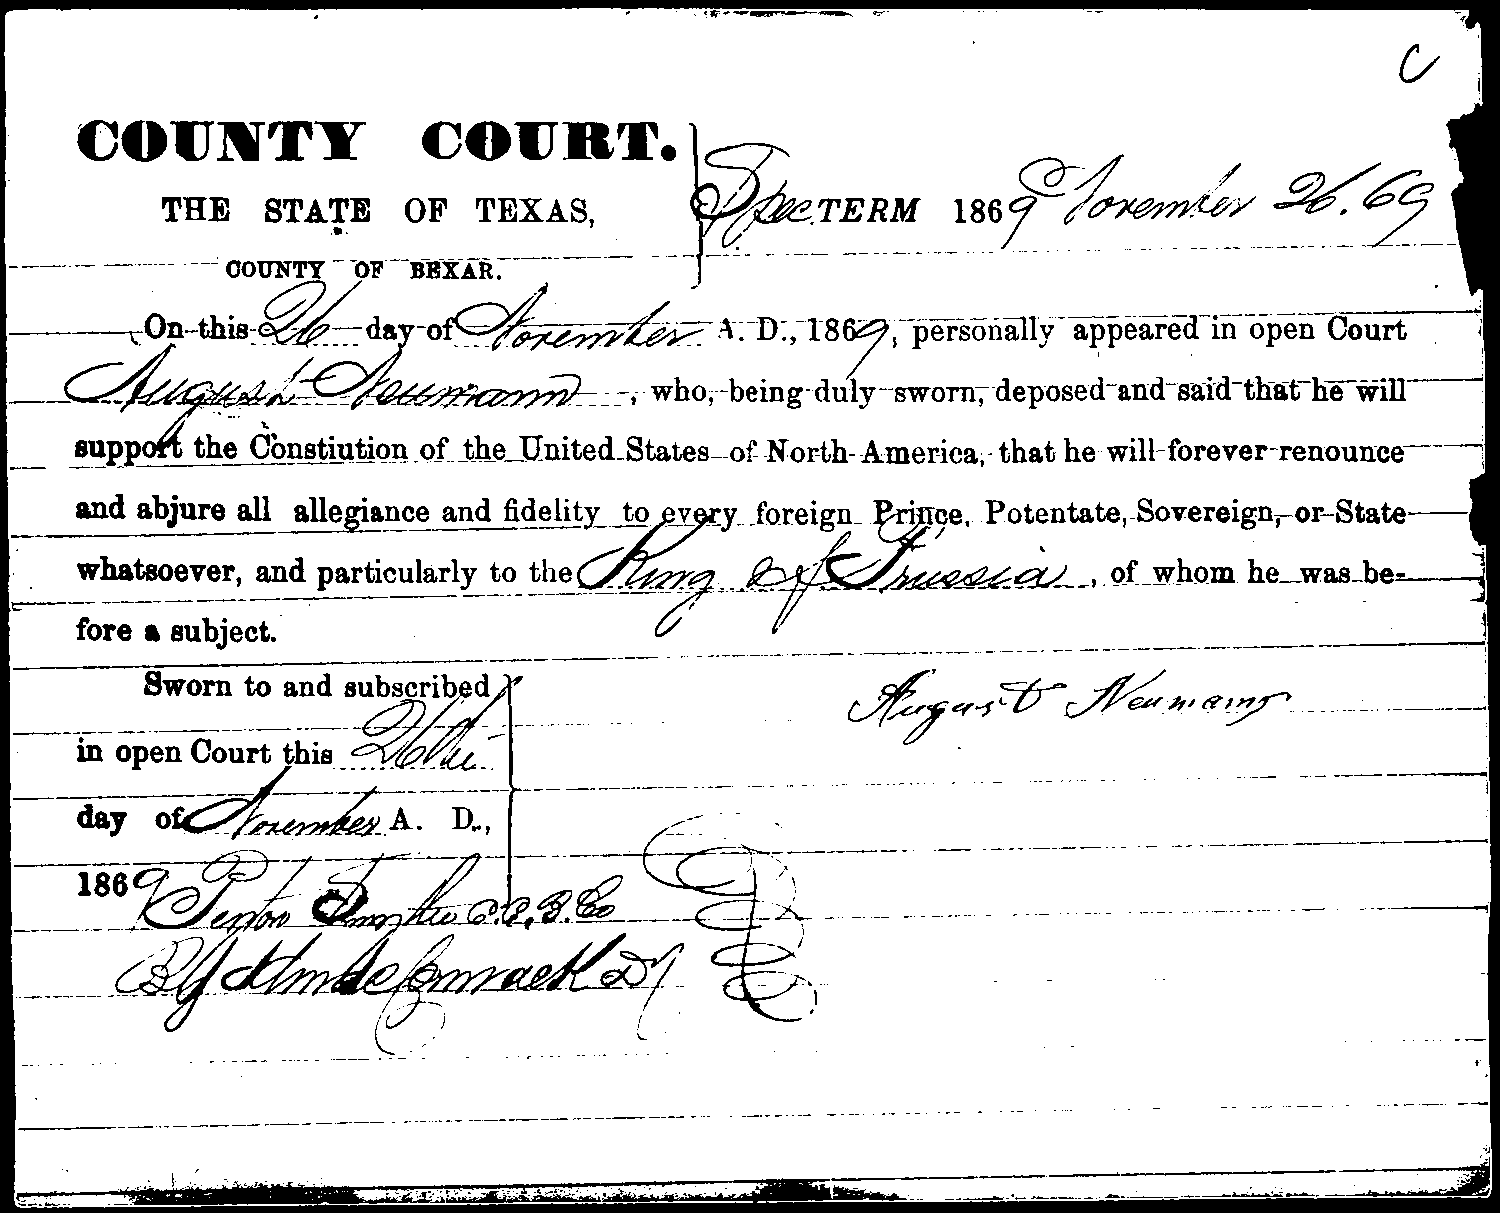 C
COUNTY COURT.
THE STATE OF TEXAS,
Spec. TERM 1869 November 26. 69
COUNTY OF BEXAR.
On this 26 day of November A. D., 1869, personally appeared in open Court
August Neumann, who, being duly sworn, deposed and said that he will
support the Constiution of the United States of North America, that he will forever renounce
and abjure all allegiance and fidelity to every foreign Prince, Potentate, Sovereign, or State
whatsoever, and particularly to the King of Prussia, of whom he was be-
fore a subject.
Sworn to and subscribed
August Neumann
in open Court this 26th
day of November A. D.,
1869 C.C.B.Co
By McCormack Dy